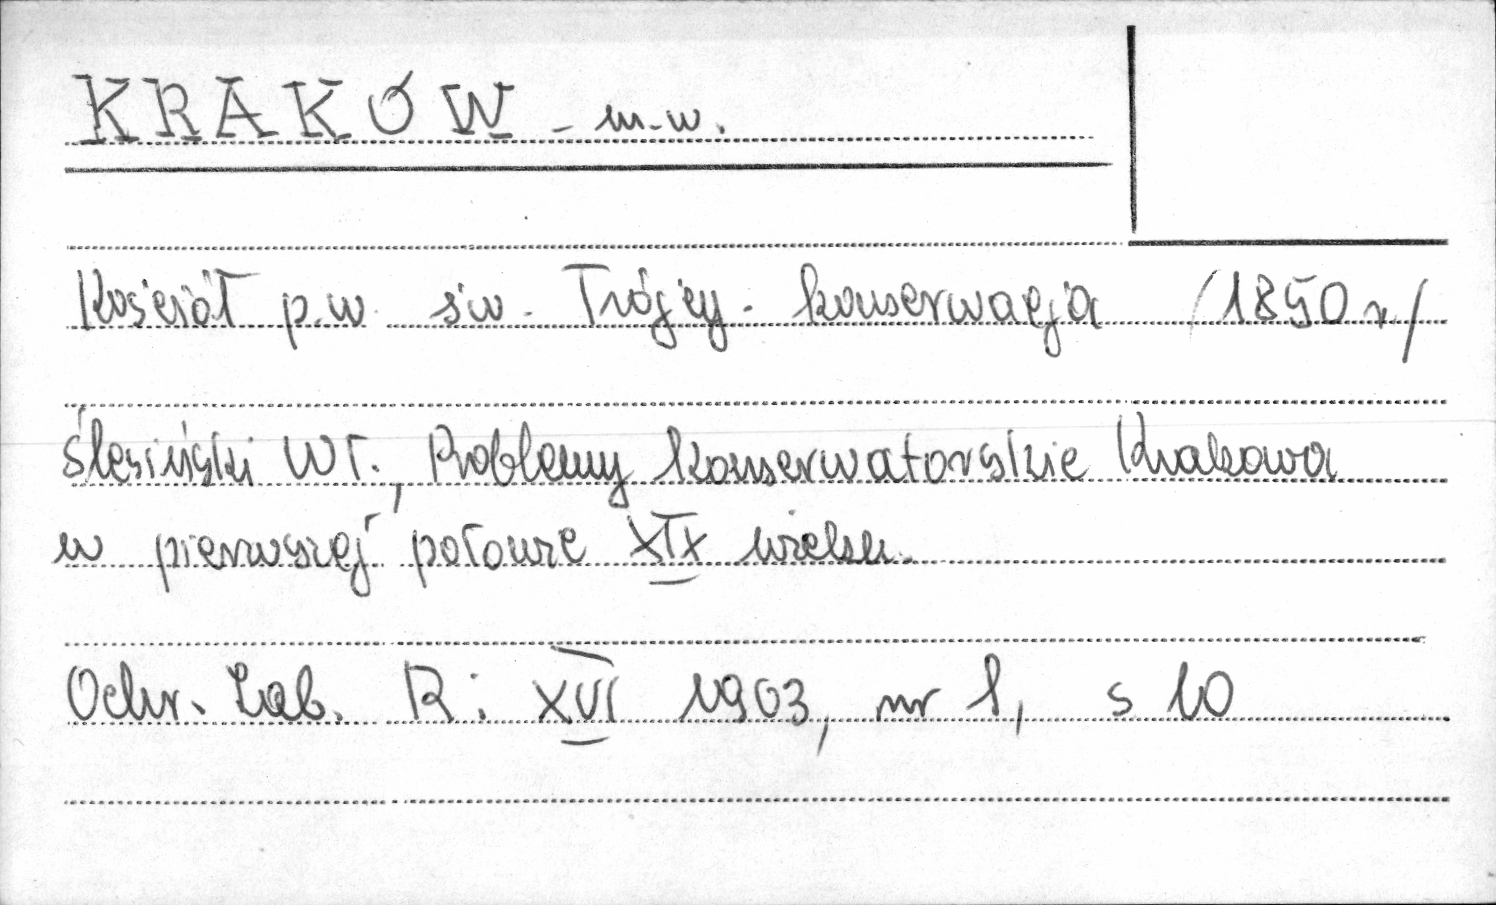 KRAKÓW - m.w.
Kościół p.w. św. Trójcy. konserwacja /1850 r/
Ślesiński Wł., Problemy konserwatorskie Krakowa
w pierwszej połowie XIX wieku.
Ochr. Zab. R: XVI 1963, nr 1, s 10